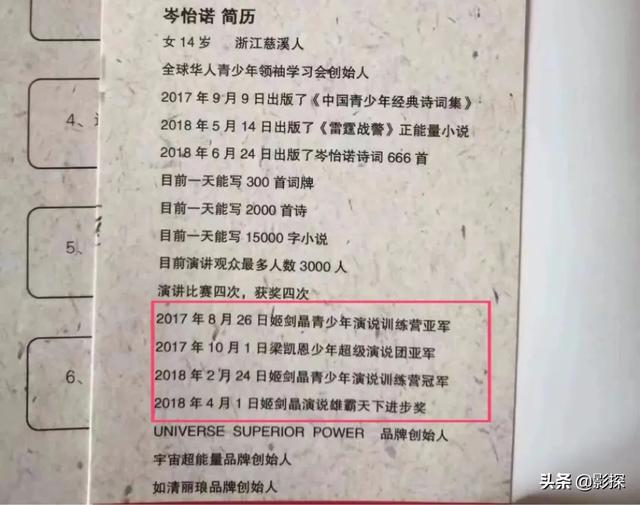 岑怡诺 简历
女 14 岁 浙江慈溪人
全球华人青少年领袖学习会创始人
2017 年 9 月 9 日出版了《中国青少年经典诗词集》
2018 年 5 月 14 日出版了《雷霆战警》正能量小说
2018 年 6 月 24 日出版了岑怡诺诗词 666 首
目前一天能写 300 首词牌
目前一天能写 2000 首诗
目前一天能写 15000 字小说
目前演讲观众最多人数 3000 人
演讲比赛四次，获奖四次
2017 年 8 月 26 日姬剑晶青少年演说训练营亚军
2017 年 10 月 1 日梁凯恩少年超级演说团亚军
2018 年 2 月 24 日姬剑晶青少年演说训练营冠军
2018 年 4 月 1 日姬剑晶演说雄霸天下进步奖
UNIVERSE SUPERIOR POWER 品牌创始人
宇宙超能量品牌创始人
如清丽琅品牌创始人
4、
5、
6、
头条 @影探